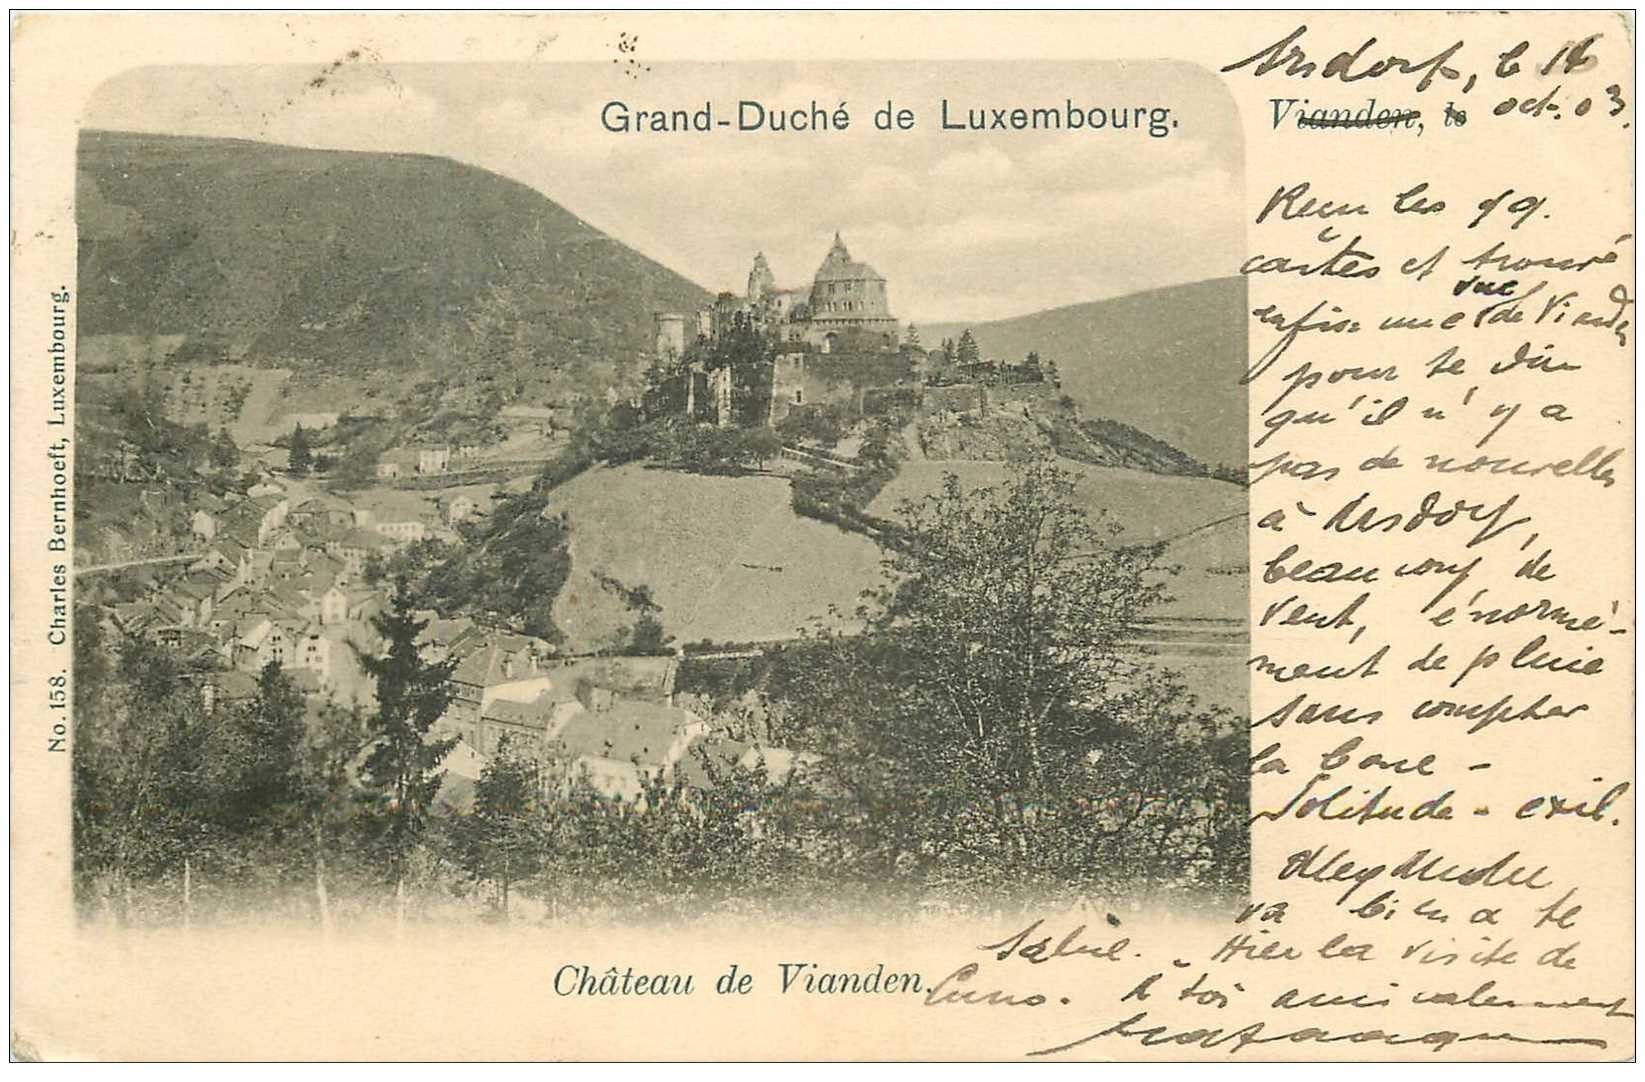 Grand-Duché de Luxembourg.
Arsdorf, le 16
oct. 03.
Vianden, le
Reçu les qq.
cartes et trouvé
enfin une vue de Vianden
pour te dire
qu'il n'y a
pas de nouvelles
à Arsdorf,
beaucoup de
vent, énormé-
ment de pluie
sans compter
la boue -
Solitude - exil.
va bien a te
Hier la visite de
Cuno. A toi amicalement
Château de Vianden.
No. 158. Charles Bernhoeft, Luxembourg.